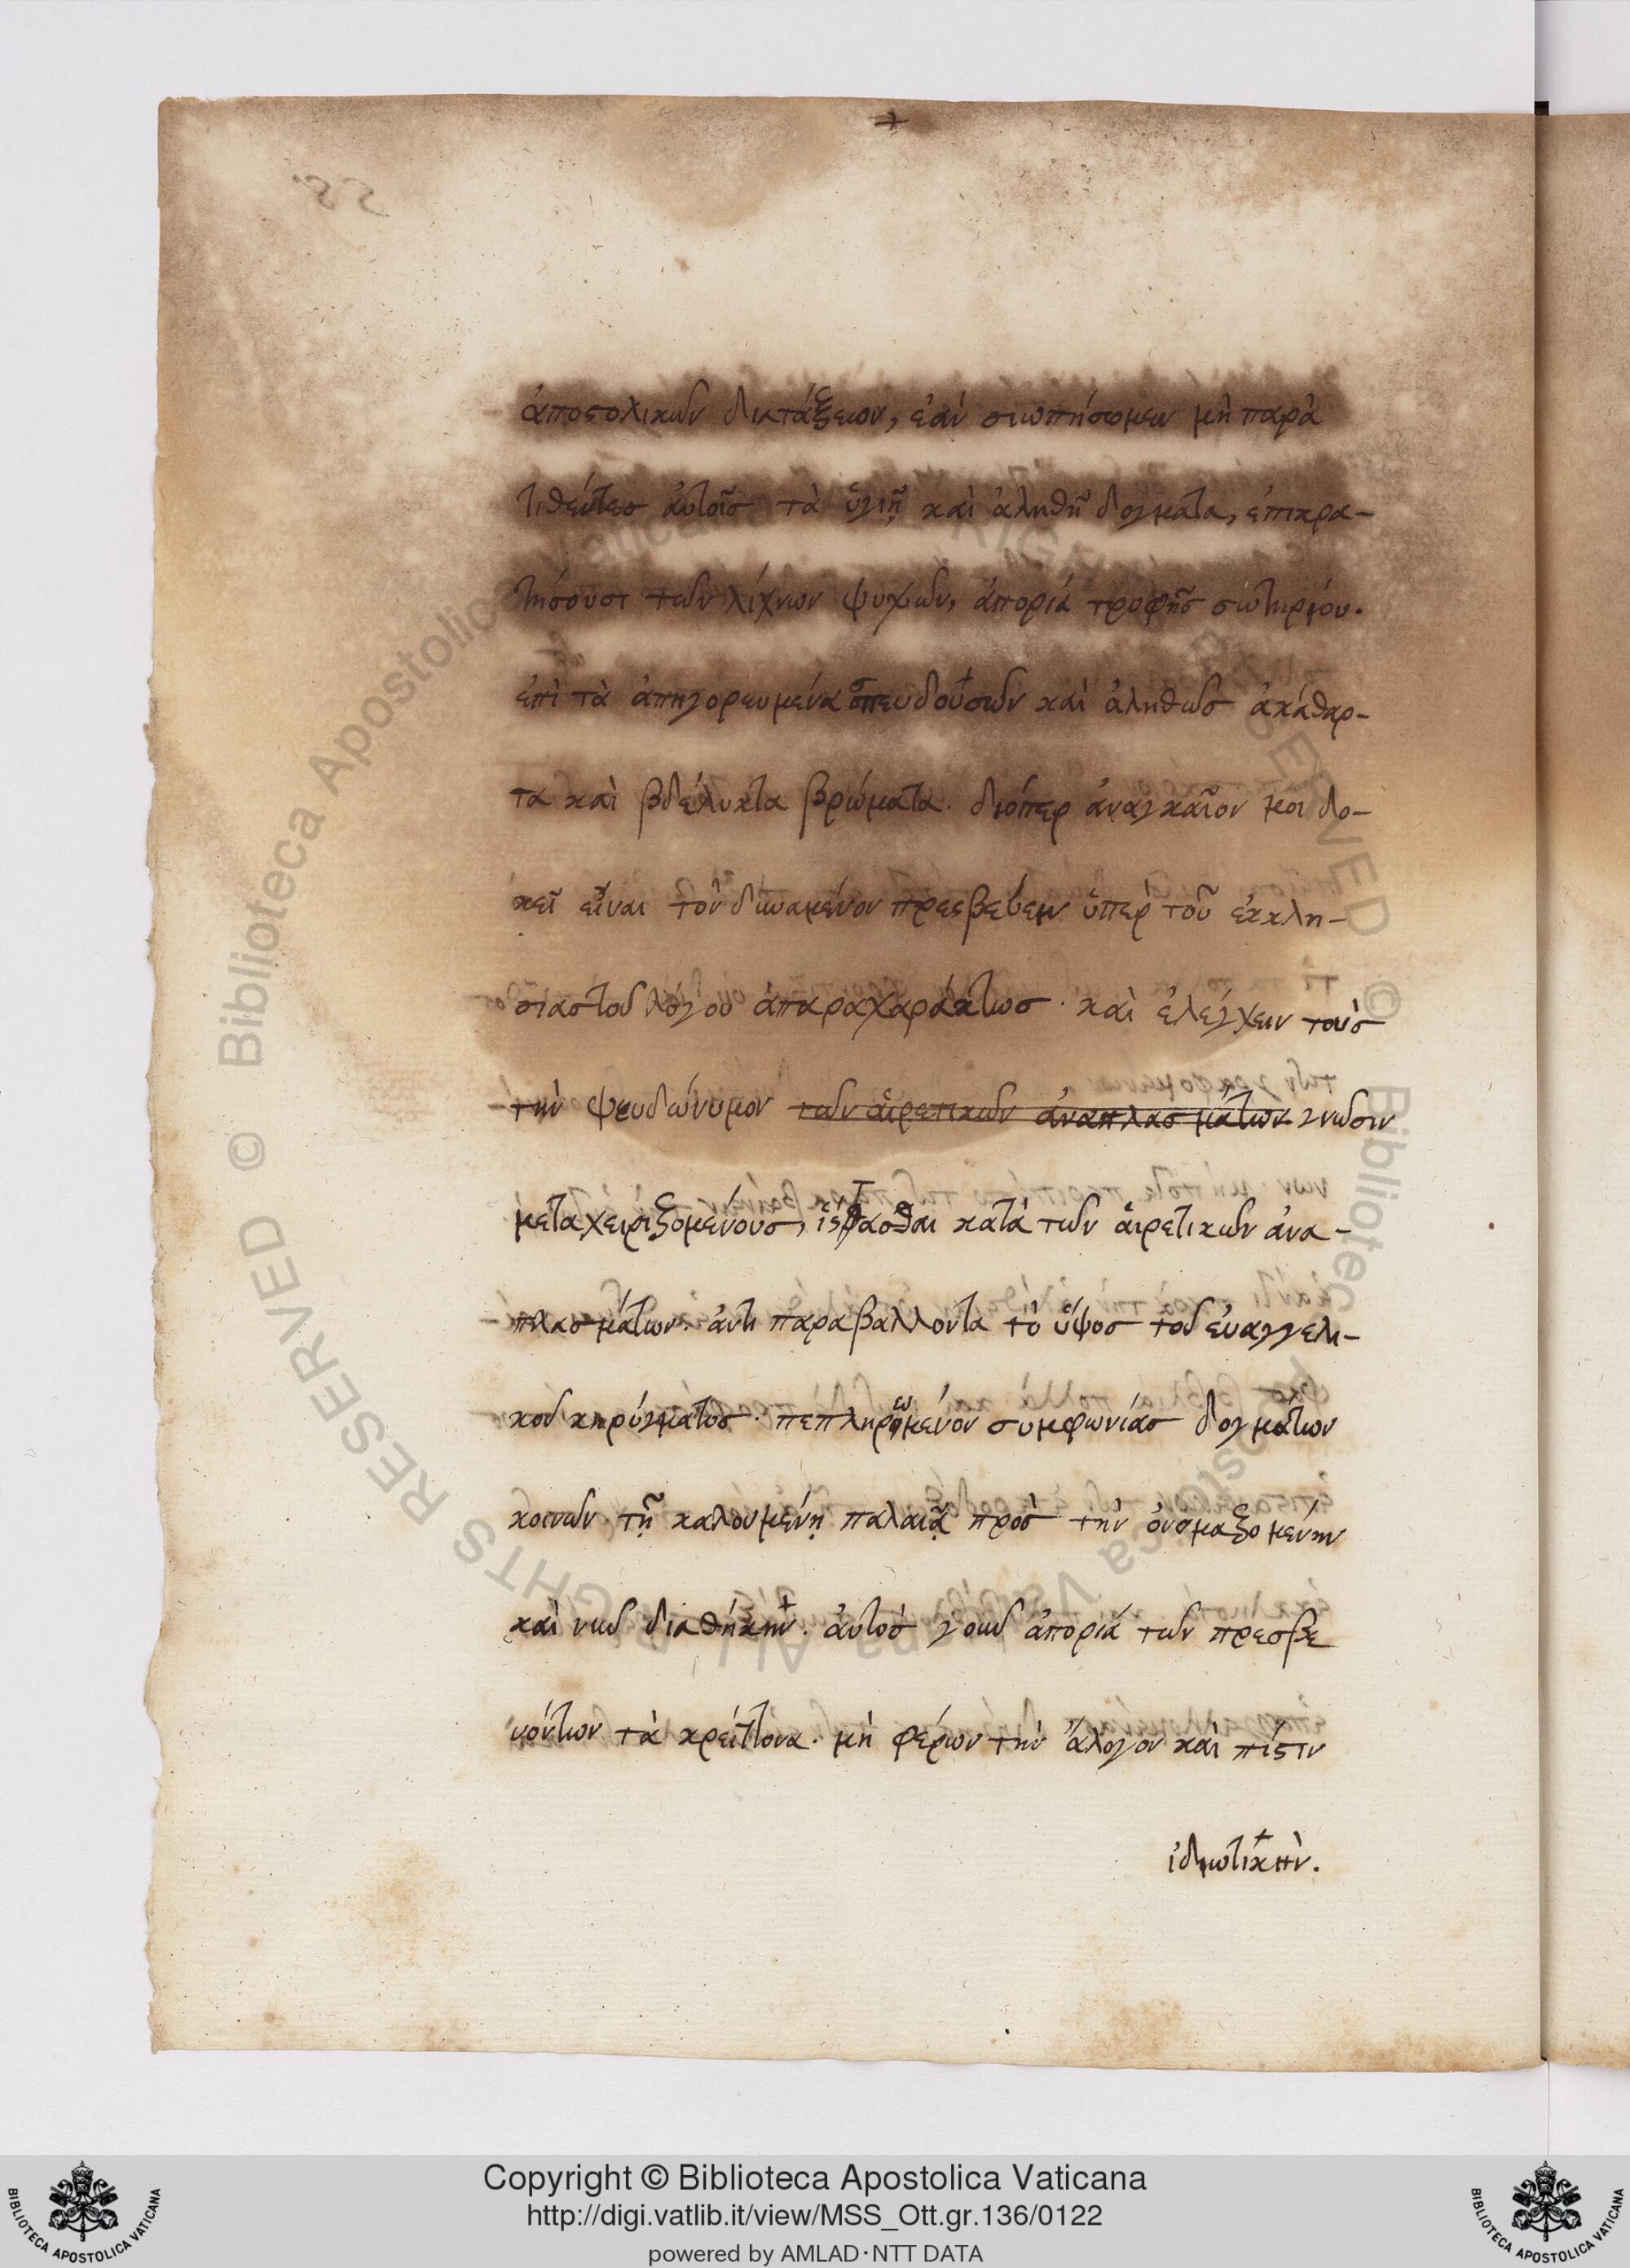 ἀποστολικῶν διατάξεων, ἐάν σιωπήσωμεν μὴ παρα
τιθέντες ἀυτοῖς τὰ ὑγιῆ καὶ ἀληθῆ δογματα, ἐπικρα-
τήσουσι τῶν λίχνων ψυχῶν, ἀπορίᾳ τροφῆς σωτηρίου.
ἐπὶ τὰ ἀπηγορευμένα σπευδούσων καὶ ἀληθῶς ἀκάθαρ-
τα καὶ βδέλυκτα βρώματα. διόπερ ἀναγκαῖον μοι δο-
κεῖ εἶναι τὸν δυναμένον πρεσβεύειν ὑπὲρ τοῦ ἐκκλη-
σιαστοῦ λόγου ἀπαραχαράκτως. καὶ ἐλέγχειν τοὺς
τὴν ψευδώνυμον τῶν αἱρετικῶν ἀναπλασμάτων γνῶσιν
μεταχειριζομένους, ἵστασθαι κατὰ τῶν αἱρετικῶν ἀνα-
πλασμάτων. ἀντιπαραβαλλόντα τὸ ὕψος τοῦ ἐυαγγελι-
κοῦ κηρύγματος. πεπληρωμένον συμφωνίας δογμάτων
κοινῶν τῇ καλουμένῃ παλαιᾷ πρὸς τὴν ὀνομαζομένην
καὶ νῦν διαθήκην. ἀυτὸς γοῦν ἀπορίᾳ τῶν πρεσβε
υόντων τὰ κρείττονα. μὴ φέρων τὴν ἄλογον καὶ πίστιν
ἰδιωτικὴν.
55
Copyright © Biblioteca Apostolica Vaticana
http://digi.vatlib.it/view/MSS_Ott.gr.136/0122
powered by AMLAD·NTT DATA
BIBLIOTECA APOSTOLICA VATICANA
BIBLIOTECA APOSTOLICA VATICANA